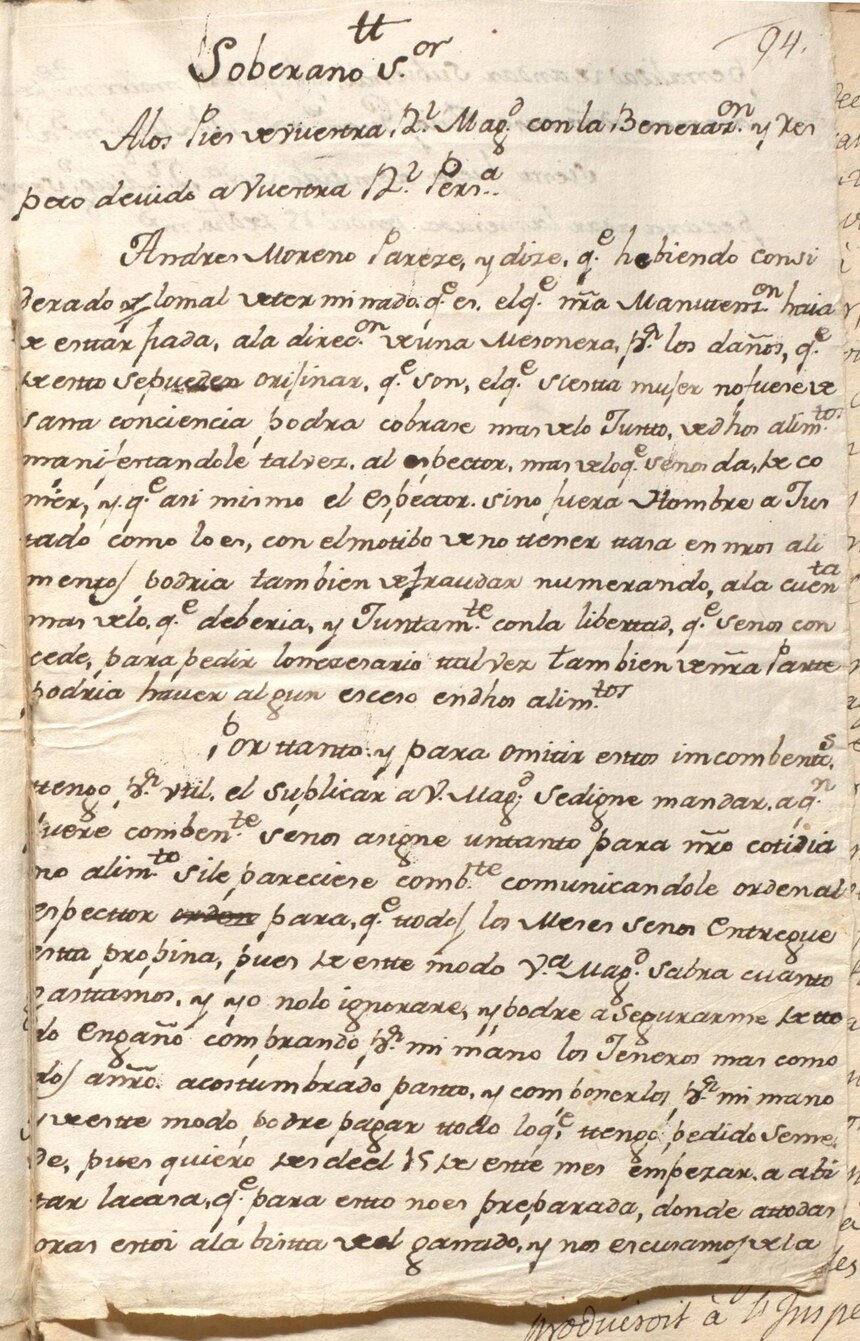 tt
94.
Soberano S.or
Alos Pies de vuestra R.l Mag.d con la Beneraz.on y Res
peto devido a Vuestra R.l Pers.a
Andres Moreno Pareze, y dize, q.e habiendo consi
derado y lomal determinado q.e es, el q.e nr̃a Manutenz.on haia
de estar fiada, ala direc.on de una Mesonera, p.r los daños, q.e
de esto sepueden orijinar, q.e son, el q.e si esta mujer no fuere de
sana conciencia, podra cobrase mas delo Justo, de dhos alim.tos
manifestandole talvez, al espector, mas delo q.e senos da, de co
mer, y q.e asi mismo el espector, sino fuera Hombre a Jus
tado como lo es, con el motibo de no ttener ttasa en nr̃os ali
mentos podria tambien defraudar numerando, ala cuenta
mas delo, q.e deberia, y Juntam.te conla libertad, q.e senos con
cede, para pedir lonezesario ttalvez tambien de nr̃a Partte
podria haver algun esceso en dhos alim.tos
Por ttanto y para omitir estos imcombents.
ttengo p.r vtil, el suplicar a V. Mag.d Sedigne mandar, a q.n
fuere comben.te senos asigne untanto para nr̃o cotidia
no alim.to sile pareciese comb.tte comunicandole orden al
espector orden para, q.e ttodos los Meses senos Entregue
estta propina, pues de este modo V.a Mag.d sabra cuanto
gasttamos, y yo nolo ignorare, y podre aSegurarme de tto
do Engaño combrando p.r mi mano los Jeneros mas como
dos anr̃o acostumbrado pasto, y combonerlos p.r mi mano
y de este modo podre pagar ttodo loq.e ttengo pedido Seme
de, pues quiero desde el 15 de este mes empezar a abi
tar lacasa, q.e para esto noes preparada, donde attodas
oras estoi ala bistta de el ganado, y nos escusamos de la
produisoit à